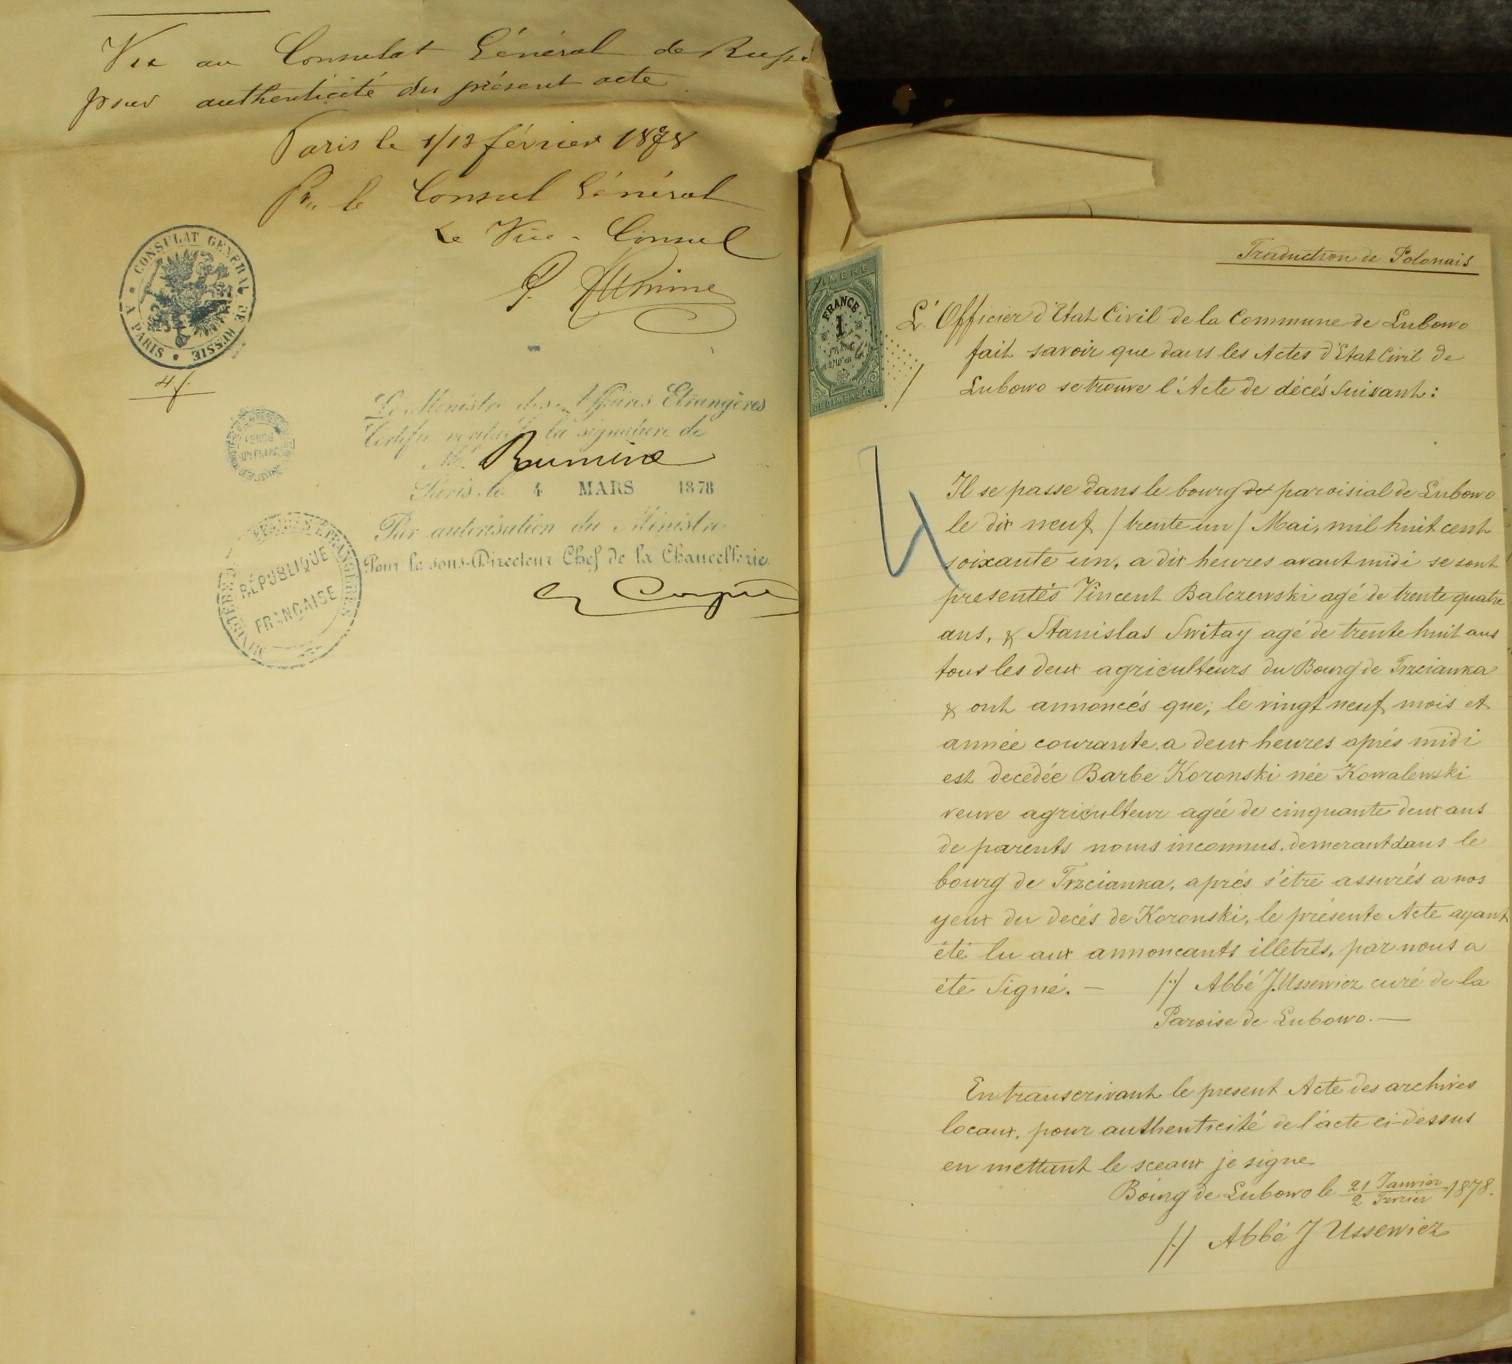 Vu au Consulat Général de Russi
pour authenticité du présent acte.
Paris le 1/13 février 1878
Pr. le Consul Général
Le Vice-Consul
CONSULAT GENERAL DE RUSSIE A PARIS
4 f.
Le Ministre des Affaires Etrangères
Certifie véritable la signature de
M. Rumine
Paris, le 4 MARS 1878
Par autorisation du Ministre
Pour le sous-Directeur Chef de la Chancellerie
RÉPUBLIQUE
FRANÇAISE
Traduction de Polonais
TIMBRE
FRANCE
1
L'Officier d'Etat Civil de la Commune de Lubowo
fait savoir que dans les Actes d'Etat Civil de
Lubowo se trouve l'Acte de décés suivant:
Il se passe dans le bourg paroisial de Lubowo
le dix neuf / trente un / Mai, mil huit cent
soixante un, a dix heures avant midi se sont
presentés Vincent Balczewski agé de trente quatre
ans, & Stanislas Switay agé de trente huit ans
tous les deux agriculteurs du Bourg de Trzcianka
& ont annoncés que, le vingt neuf mois et
année courante, a deux heures aprés midi
est decédée Barbe Koronski née Kowalewski
veuve agriculteur agée de cinquante deux ans
de parents noms inconnus, demerant dans le
bourg de Trzcianka, aprés s'être assurés a nos
yeux du decés de Koronski, le présente Acte ayant
été lu aux annoncants illetrés, par nous a
été Signé. — /-/ Abbé J. Ussewicz curé de la
Paroise de Lubowo. —
En transcrivant le present Acte des archives
locaux, pour authenticité de l'acte ci-dessus
en mettant le sceaux je signe
Bourg de Lubowo le 21 Janvier / 2 Fevrier 1878.
/-/ Abbé J Ussewicz